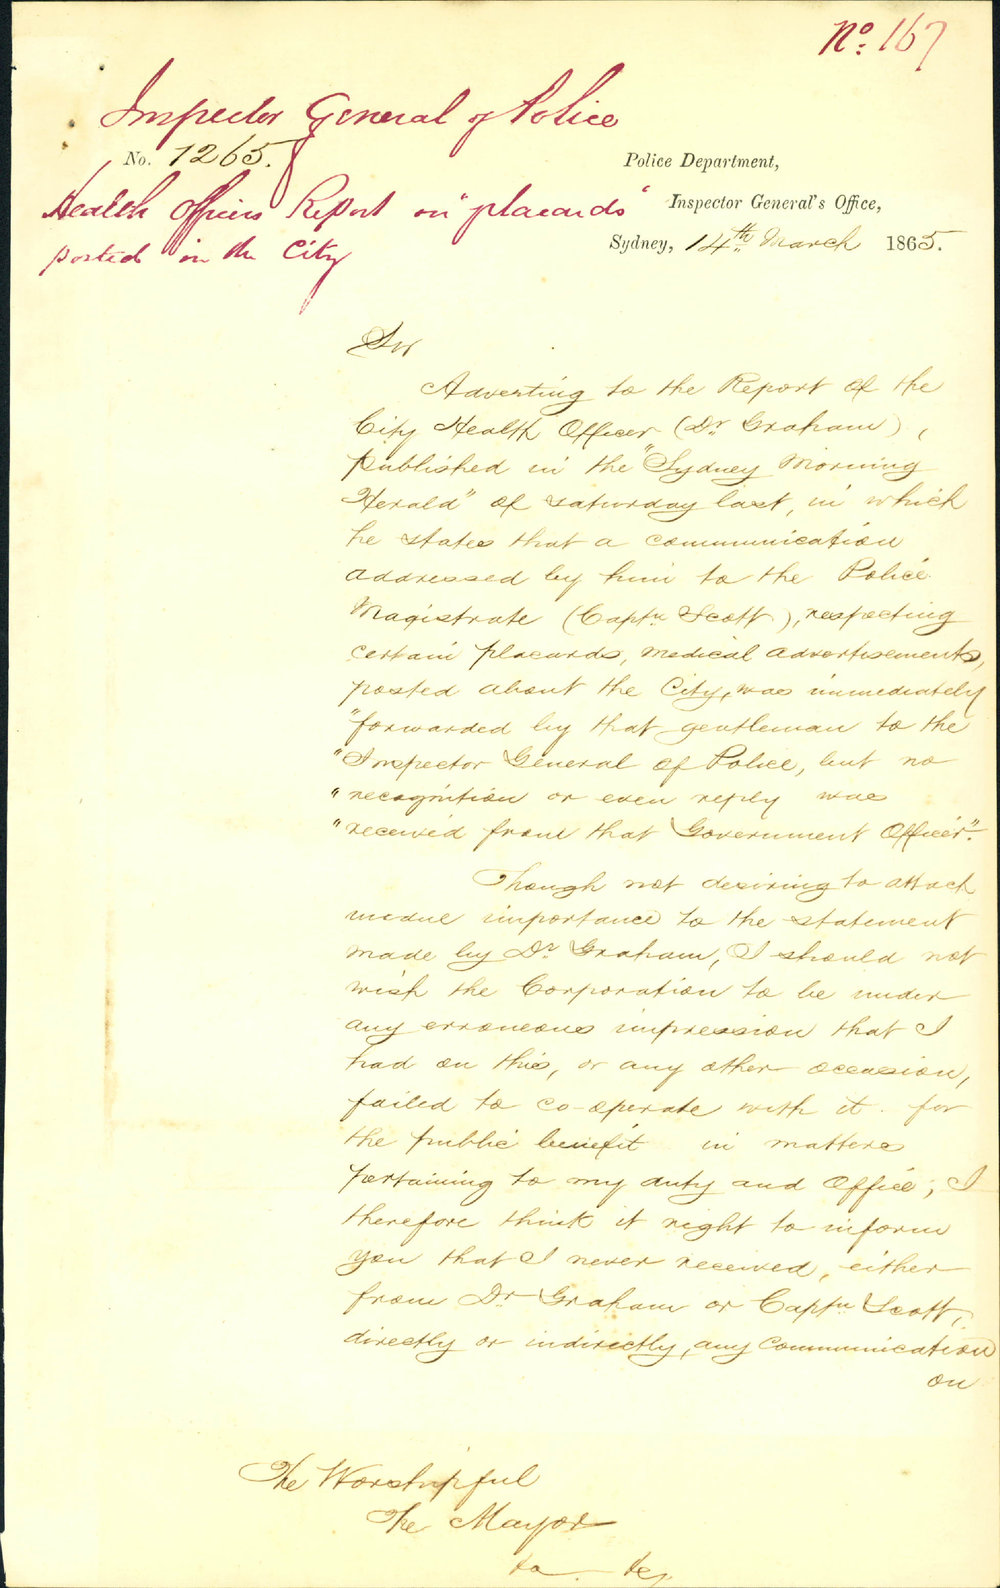 No. 167
Inspector General of Police
No. 1265.
Health Officers Report on "placards"
posted in the City
Police Department,
Inspector General's Office,
Sydney, 14th March 1865.
Sir
Adverting to the Report of the
City Health Officer (Dr Graham),
published in the "Sydney Morning
Herald" of Saturday last, in which
he states that a communication
addressed by him to the Police
Magistrate (Captn Scott), respecting
certain placards, medical advertisements,
posted about the City, was immediately
"forwarded by that gentleman to the
"Inspector General of Police, but no
"recognition or even reply was
"received from that Government Officer".
Though not desiring to attach
undue importance to the statement
made by Dr Graham, I should not
wish the Corporation to be under
any erroneous impression that I
had on this, or any other occasion,
failed to co-operate with it for
the public benefit in matters
pertaining to my duty and Office; I
therefore think it right to inform
you that I never received, either
from Dr Graham or Captn Scott,
directly or indirectly, any communication
on
The Worshipful
The Mayor